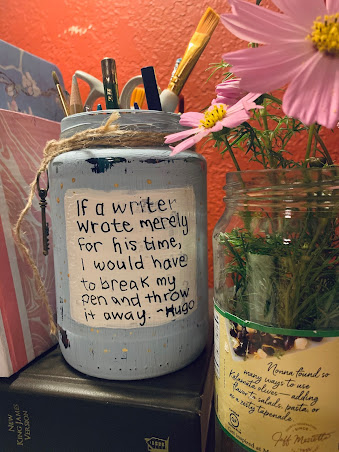 If a writer
wrote merely
for his time,
I would have
to break my
pen and throw
it away. ~Hugo
NEW
KING JAMES
VERSION
Nonna found so
many ways to use
Kalamata olives—adding
flavor to salads, pasta, or
as a zesty tapenade.
Jeff